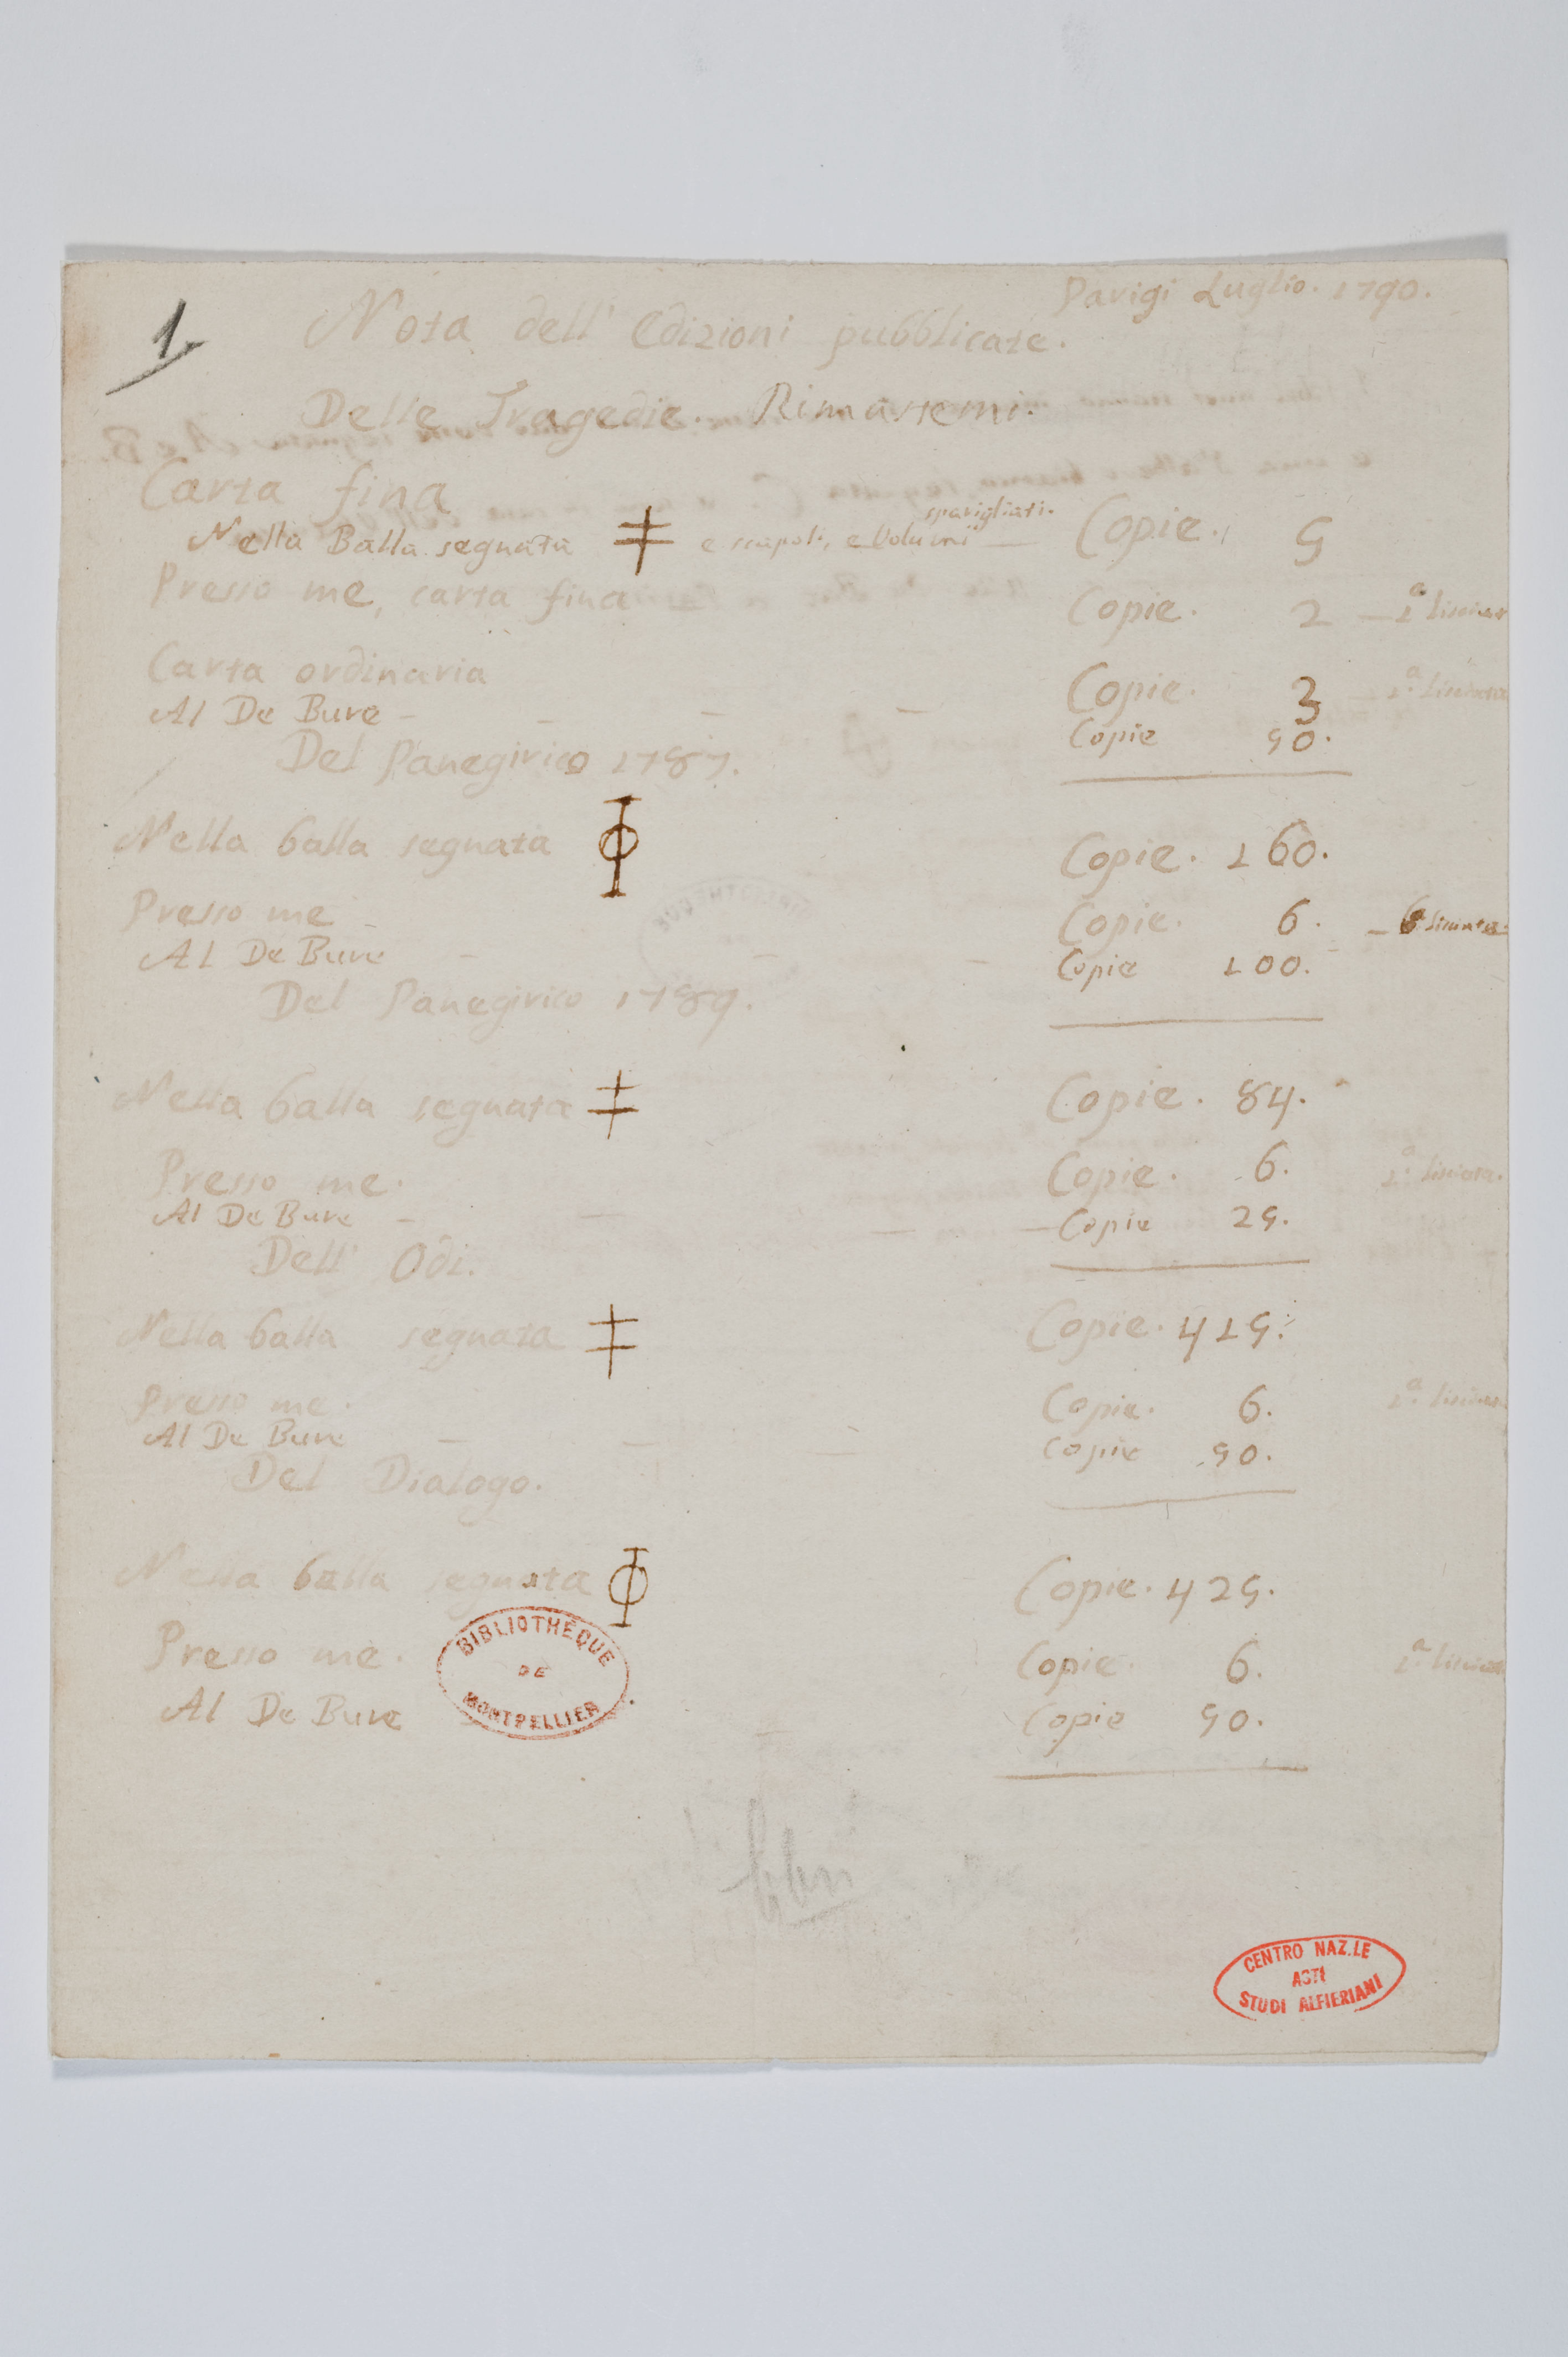 1.
Parigi Luglio. 1790.
Nota dell' Edizioni pubblicate.
Delle Tragedie. Rimastemi.
Carta fina
sparigliati.
Nella Balla segnata ‡ e scapoli, e Volumi — Copie. 5
Presso me, carta fina Copie. 2 — 1.ª lisciata
Carta ordinaria Copie. 3 — 1.ª lisciata
Al De Bure - - - - Copie 50.
Del Panegirico 1787.
Nella balla segnata Φ Copie. 160.
Presso me Copie. 6. —
Al De Bure - - - Copie 100.
Del Panegirico 1789.
Nella balla segnata ‡ Copie. 84.
Presso me. Copie. 6. 1.ª lisciata.
Al De Bure - - - - Copie 25.
Dell' Odi.
Nella balla segnata ‡ Copie. 415.
Presso me. Copie. 6. 1.ª lisciata
Al De Bure - - - Copie 50.
Del Dialogo.
Nella balla segnata Φ Copie. 425.
Presso me. Copie. 6. 1.ª lisciata
Al De Bure - Copie 50.
BIBLIOTHÈQUE
DE
MONTPELLIER
CENTRO NAZ.LE
ASTI
STUDI ALFIERIANI